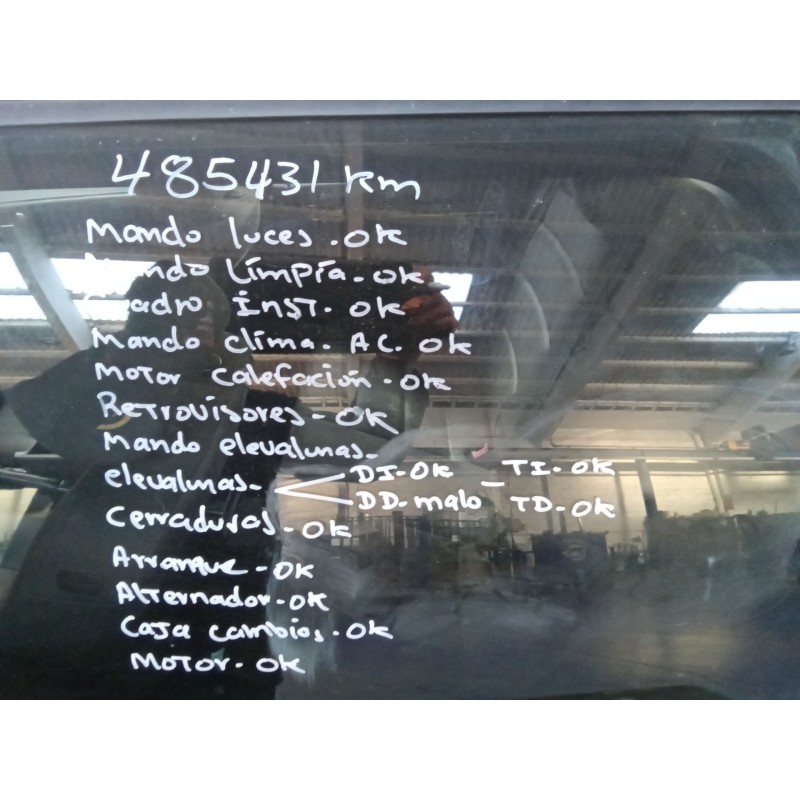 485431 km
Mando luces. OK
Mando Limpia. OK
Cuadro INST. OK
Mando clima. AC. OK
Motor calefacion. OK
Retrovisores - OK
Mando elevalunas -
elevalunas - DI-OK - TI-OK
DD-malo TD-OK
Cerraduras - OK
Arranque - OK
Alternador - OK
Caja cambios. OK
Motor. OK